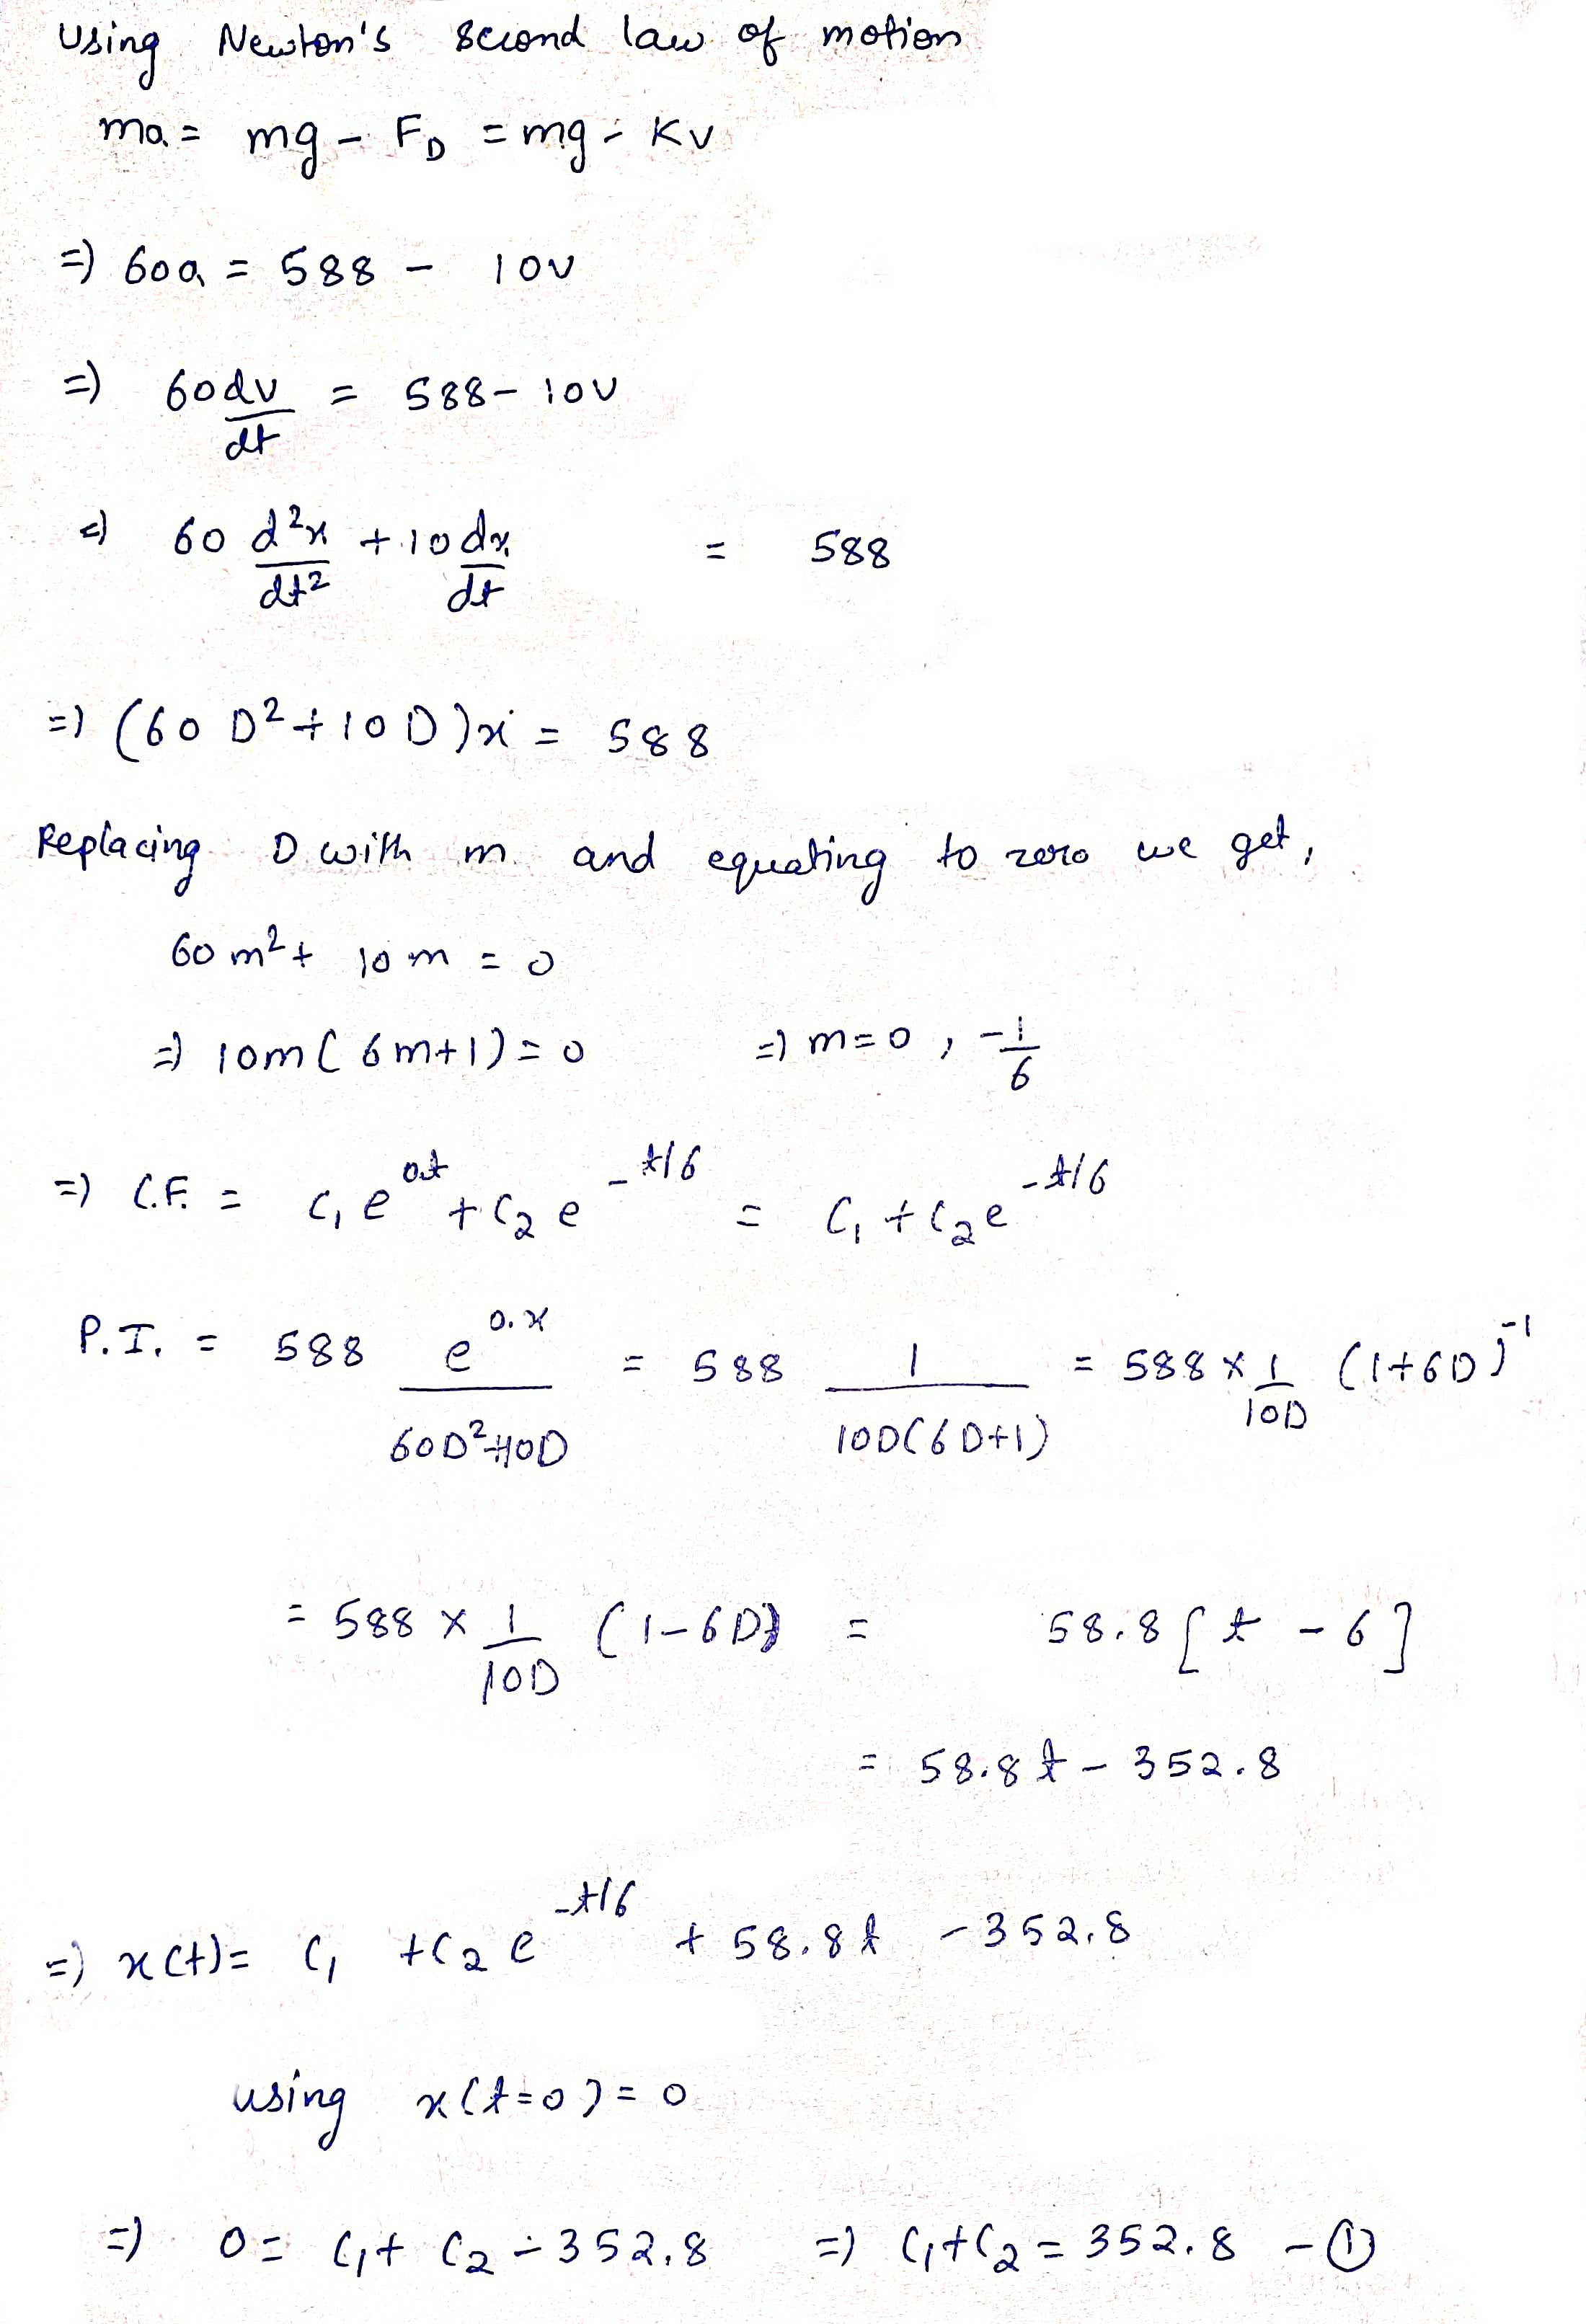 Using Newton's second law of motion
ma = mg - F_D = mg - Kv
=) 60a = 588 - 10v
=) 60 dv/dt = 588 - 10v
=) 60 d²x/dt² + 10 dx/dt = 588
=) (60 D² + 10 D)x = 588
Replacing D with m and equating to zero we get,
60 m² + 10 m = 0
=) 10m(6m+1) = 0 =) m = 0, -1/6
=) C.F. = C₁ e^(0.t) + C₂ e^(-t/6) = C₁ + C₂ e^(-t/6)
P.I. = 588 e^(0.x)/(60D²+10D) = 588 1/(10D(6D+1)) = 588 × 1/(10D) (1+6D)⁻¹
= 588 × 1/(10D) (1-6D) = 58.8 [t - 6]
= 58.8t - 352.8
=) x(t) = C₁ + C₂ e^(-t/6) + 58.8t - 352.8
using x(t=0) = 0
=) 0 = C₁ + C₂ - 352.8 =) C₁+C₂ = 352.8 - ①